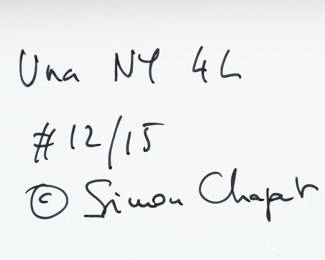 Una NY 4L
#12/15
© Simon Chaput